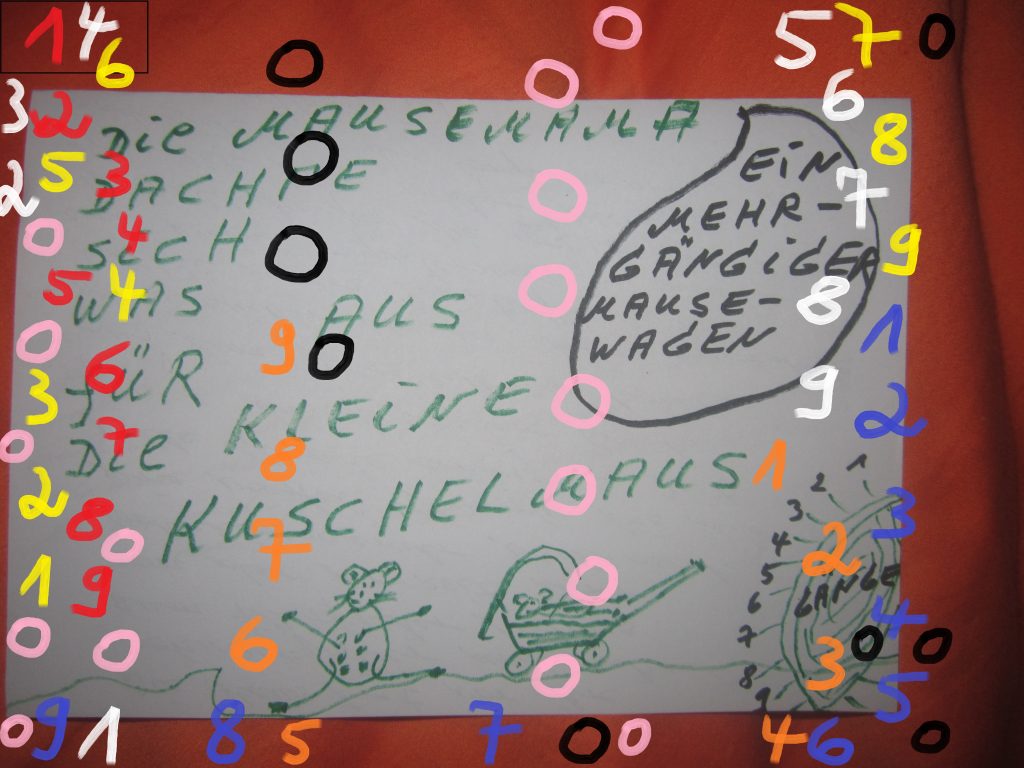 1 4 6 0 0 0 5 7 0
3 2 0 6 8
DiE MAUSEMAMA
5 3 0 EiN
2 DACHTE 0 7
0 4 MEHR-
SiCH 0 9
5 4 0 GÄNGiGER
WAS AUS MAUSE- 8 1
0 6 9 0 WAGEN
füR 9
3 7 KLEiNE 0 2
0 DiE 8 1
KUSCHELMAUS 0 1
2 8 7 2 3 2 3
0 4
1 9 5 GÄNGE
0 6 4
0 0 6 7 3 0 0
0 8 5
9
0 9 1 8 5 7 0 0 4 6 0